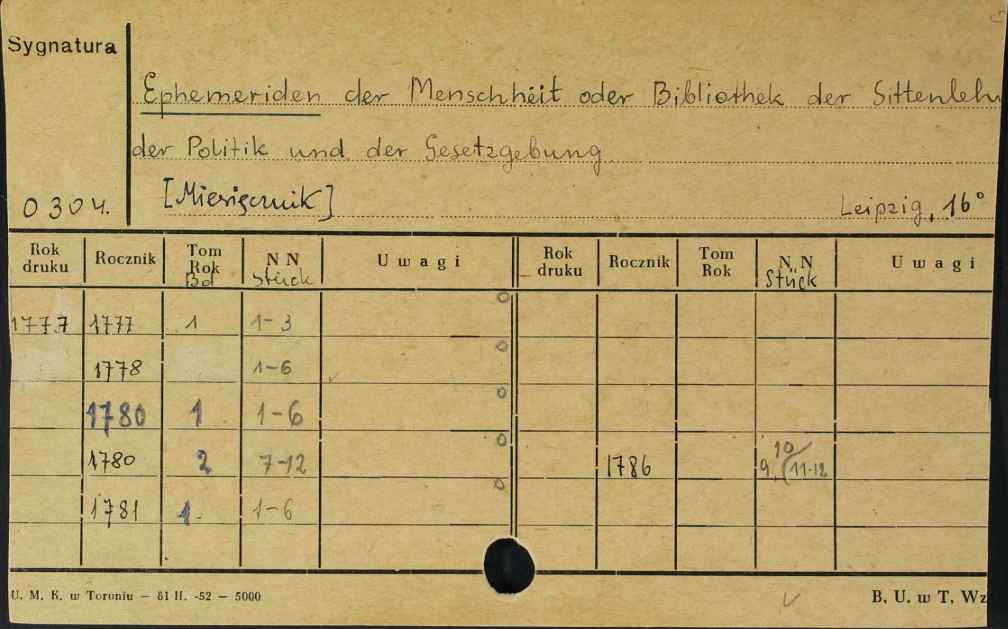 Sygnatura
Ephemeriden der Menschheit oder Bibliothek der Sittenlehr
der Politik und der Gesetzgebung
[Miesięcznik]
0304.
Leipzig, 16°
Rok druku Rocznik Tom Rok Bd N N Stück Uwagi Rok druku Rocznik Tom Rok N N Stück Uwagi
1777 1777 1 1-3
1778 1-6
1780 1 1-6
1780 2 7-12 1786 9, 10 11-12
1781 1. 1-6
U. M. K. w Toruniu — 81 II. -52 — 5000
B. U. w T. Wz